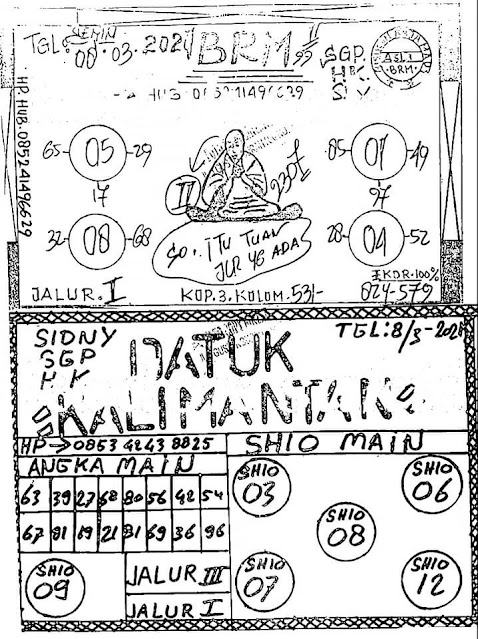 SENIN
TGL: 08.03.2021 BRM 99 SGP
HK
SY
ASLI
BRM
HUB. 085241496629
HP HUB. 085241496629
65 05 29
17
32 08 68
II
85 01 49
97
28 04 52
SO.. ITU TUAN
JLR YG ADA
JALUR. I
KOP. 3. KOLOM. 531-
IKOR. 100%
024-579
SIDNY
SGP
HK
TGL: 8/3-2021
DATUK
KALIMANTAN
HP → 0853 4243 8825
SHIO MAIN
ANGKA MAIN
63 39 27 68 80 56 42 54
67 91 19 21 81 69 36 96
SHIO
03
SHIO
06
SHIO
08
SHIO
09
JALUR III
JALUR I
SHIO
07
SHIO
12